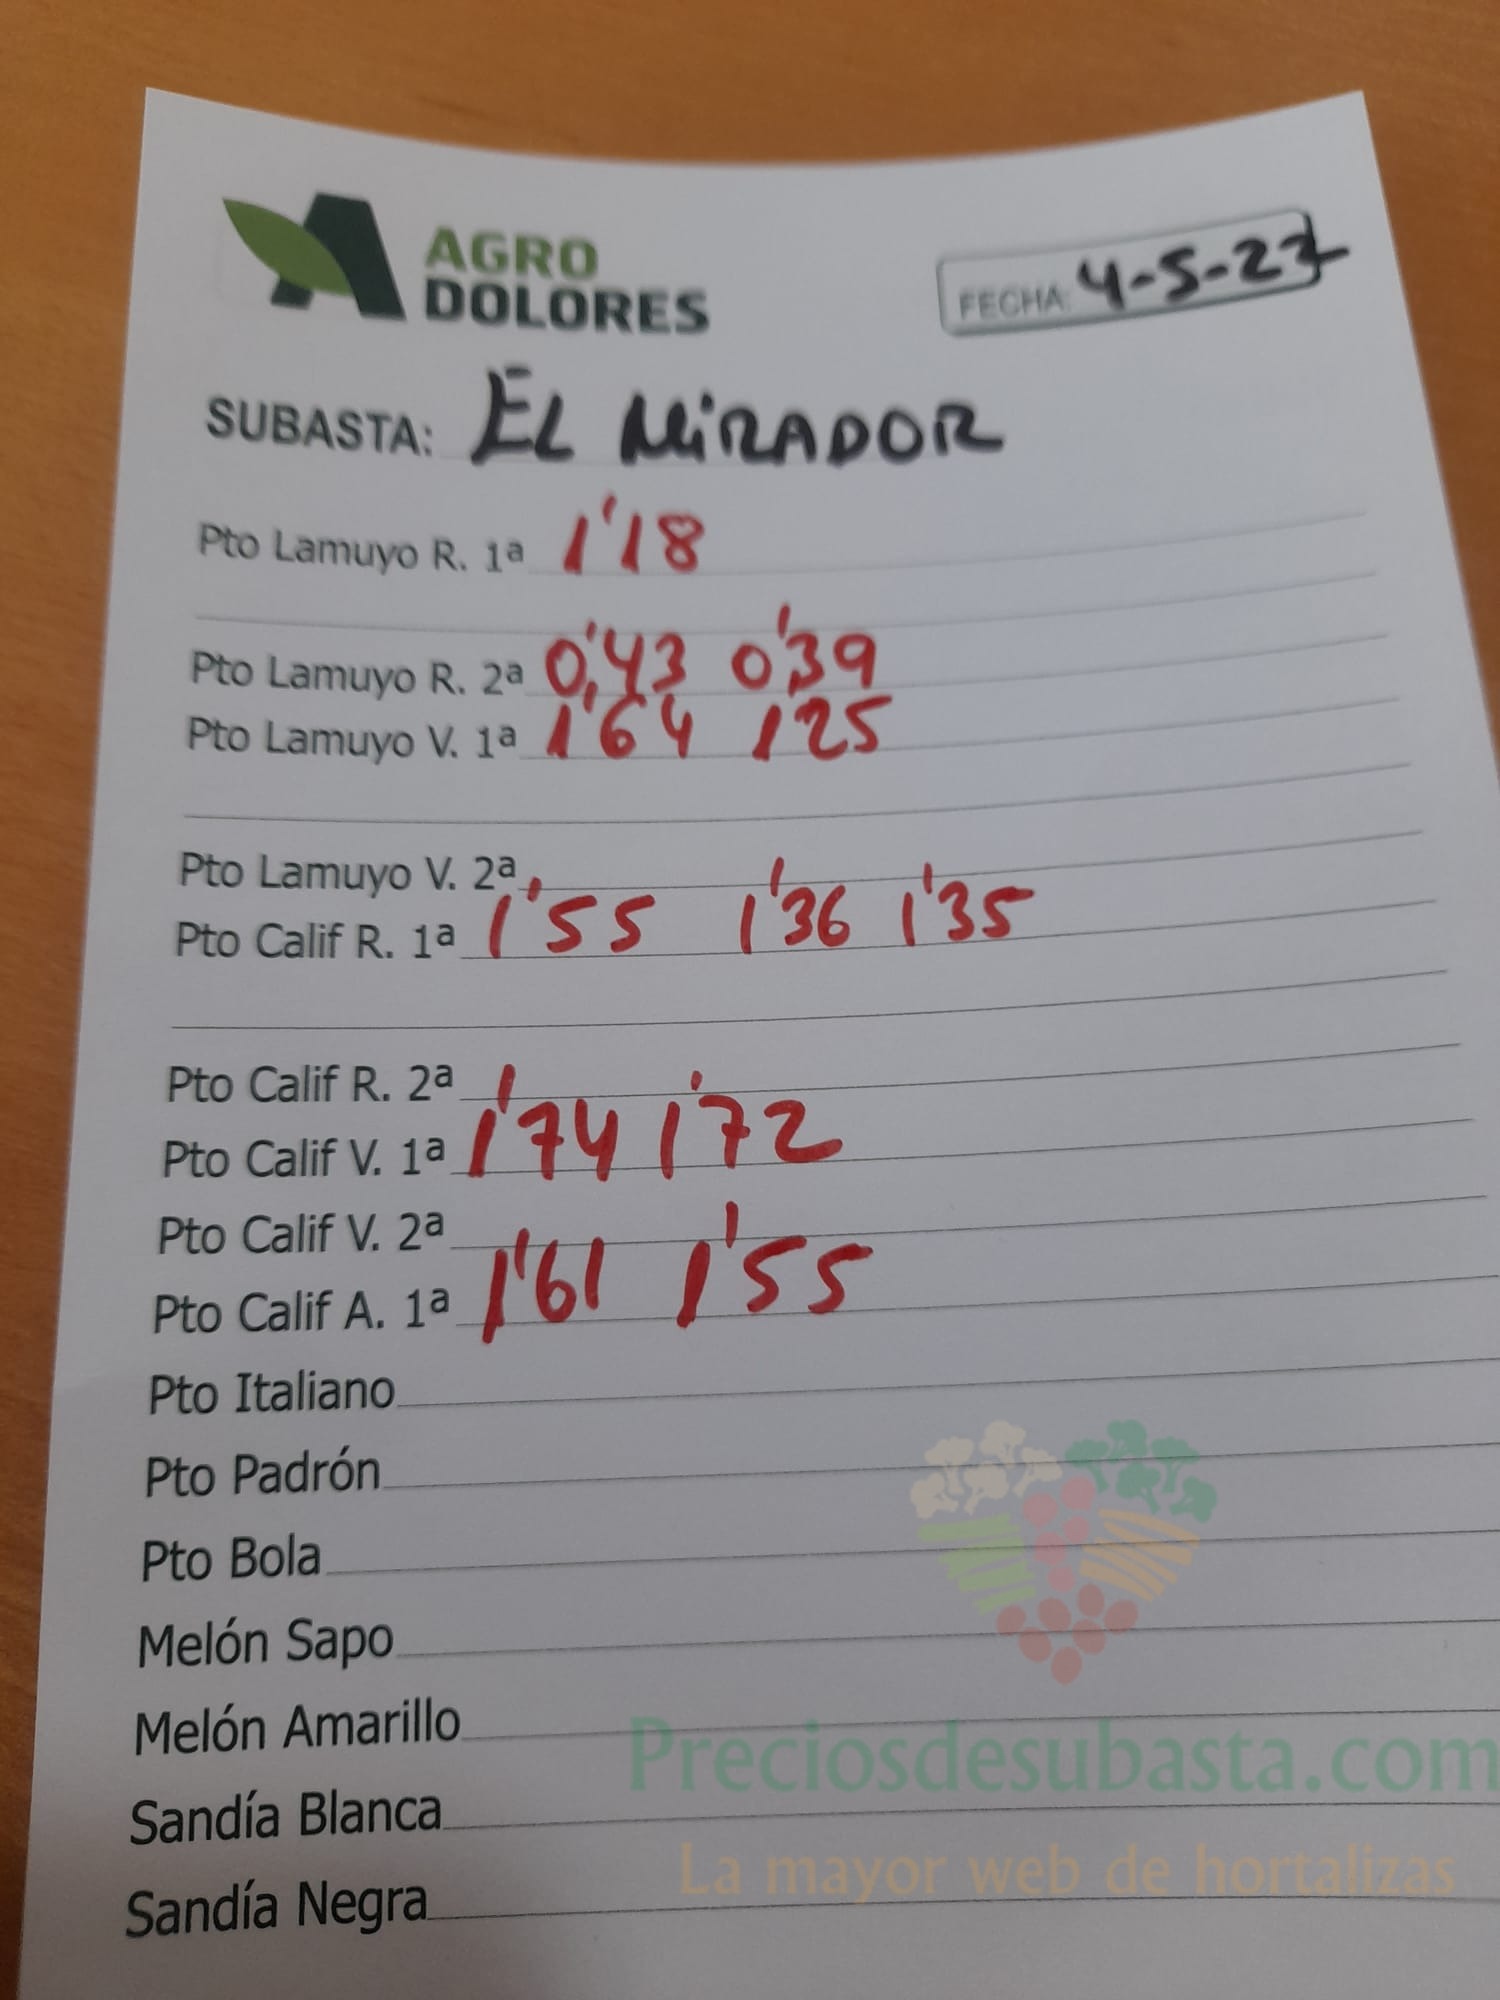 AGRO
DOLORES
FECHA: 4-5-23
SUBASTA: EL MiRADOR
Pto Lamuyo R. 1ª 1'18
Pto Lamuyo R. 2ª 0,'43 0'39
Pto Lamuyo V. 1ª 1'64 125
Pto Lamuyo V. 2ª
Pto Calif R. 1ª 1'55 1'36 1'35
Pto Calif R. 2ª
Pto Calif V. 1ª 1'74 1'72
Pto Calif V. 2ª
Pto Calif A. 1ª 1'61 1'55
Pto Italiano
Pto Padrón
Pto Bola
Melón Sapo
Melón Amarillo
Preciosdesubasta.com
Sandía Blanca
La mayor web de hortalizas
Sandía Negra